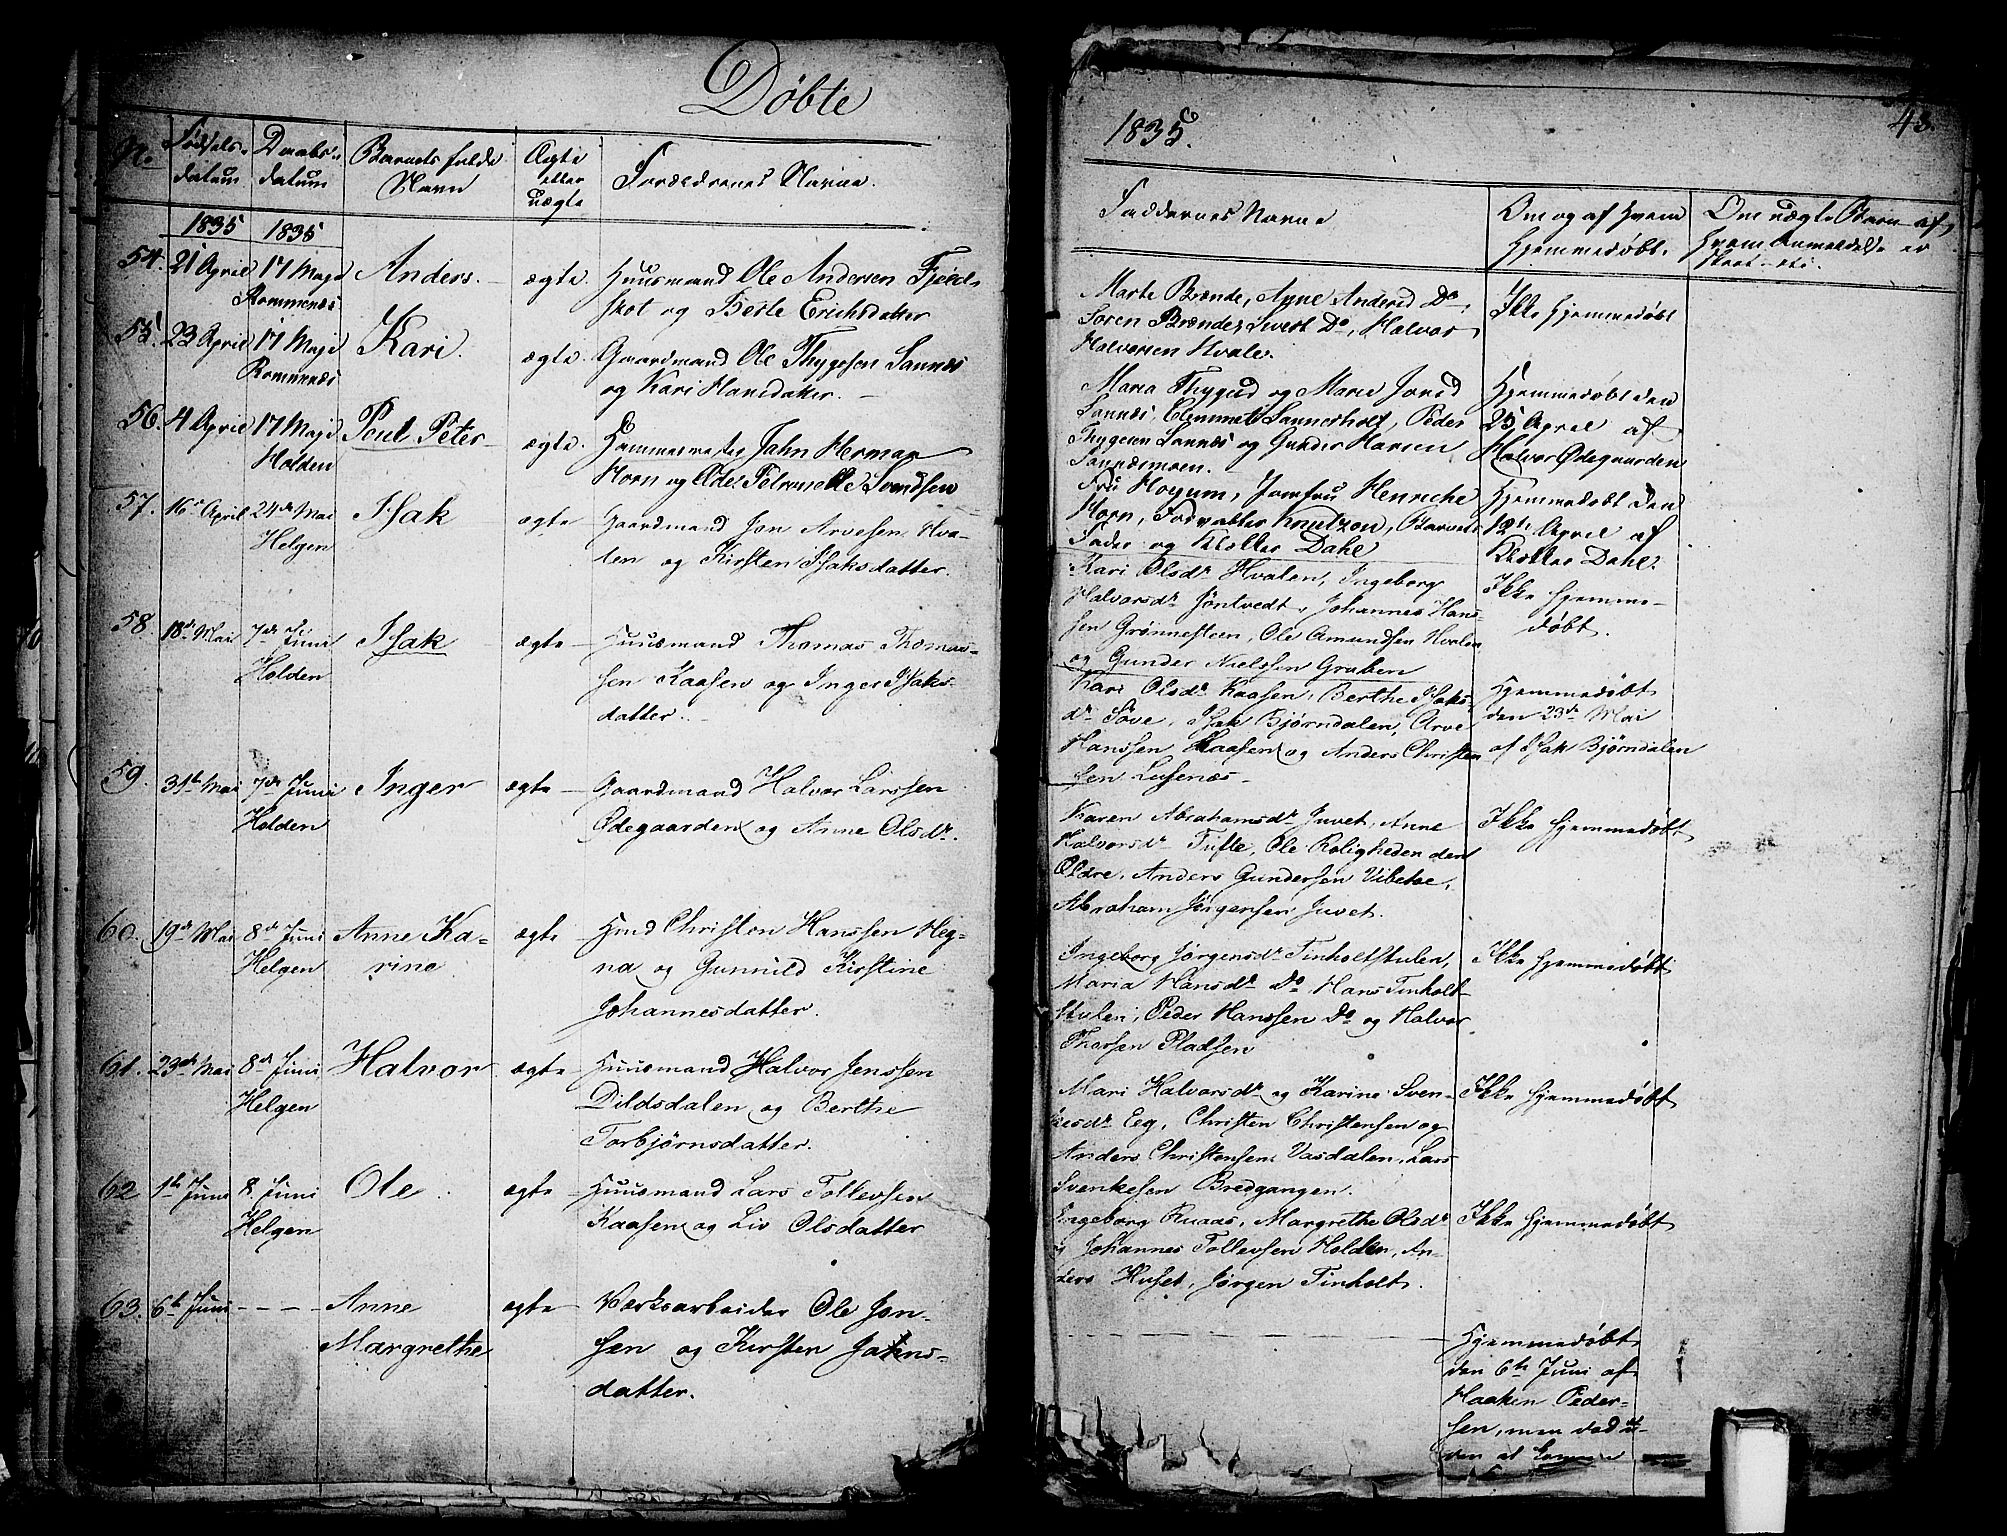 Døbte
No. Fødsels- datum
Daabs- datum
Barnets fulde Navn
Ægte eller uægte
Forældrenes Navne.
1835 1835
54. 21 April 17 Maji Rommenæs Anders. ægte. Huusmand Ole Andersen Fjeld-
skot og Berte Erichsdater
55. 23 April 17 Maji Rommenæs Kari. ægte. Gaardmand Ole Thygesen Sannæs
og Kari Hansdater.
56. 4 April 17 Maji Holden Poul Peter ægte. Hammermester Jahn Herman
Horn og Edel Petronelle Svendsen
57. 16 April 24de Mai Helgen Isak ægte Gaardmand Jon Arvesen Hva-
len og Kirsten Isaksdatter.
58. 18de Mai 7de Juni Holden Isak ægte Huusmand Thomas Thomas-
sen Kaasen og Inger Isaks-
datter.
59. 31te Mai 7de Juni Holden Inger ægte Gaardmand Halvor Larssen
Ødegaarden og Anne Olsdr.
60. 19de Mai 8de Juni Helgen Anne Ka- rine. ægte Hmd Christen Hanssen Heg-
na og Gunnild Kirstine
Johannesdatter.
61. 23de Mai 8de Juni Helgen Halvor ægte Huusmand Halvor Jenssen
Dildsdalen og Berthe
Torbjørnsdatter.
62 1te Juni 8. Juni Helgen Ole. ægte Huusmand Lars Tollevsen
Kaasen og Liv Olsdatter
63. 6te Juni - - - - Anne Margrethe ægte Værksarbeider Ole Jon-
sen og Kirsten Jahns-
datter.
1835.
43.
Faddernes Navne
Om og af hvem hjemmedøbt.
Om uægte Barn af hvem Anmeldelse er
Marte Brænde, Anne Andersd Do,
Søren Brænde, Sivert Do, Halvor
Halvorsen Hvale.
Ikke hjemmedøbt
Maria Thygesd og Maria Jonsd
Sannæs, Clemmet Sannerholt, Peder
Thygesen Sannæs og Gunder Hansen
Sannæsmoen.
Hjemmedøbt den
25 April af
Halvor Ødegaarden
Fru Høyum, Jomfru Henriche
Horn, Forvalter Knutzon, Barnets
Fader og Dahl
Hjemmedøbt den
12te April af
Dahl.
Kari Olsdr Hvalen, Ingeborg
Halvorsdr Jøntvedt, Johannes Hans-
sen Grønnesteen, Ole Amundsen Hvalen
og Gunder Nielssen Graben
Ikke hjemme-
døbt.
Kari Olsdr Kaasen, Berthe Isaks-
dr Søve, Isak Bjørndalen, Arve
Hanssen Kaasen og Anders Christen
sen Lusenæs
Hjemmedøbt
den 23de Mai
af Isak Bjørndalen
Karen Abrahamsdr Juvet, Anne
Halvorsdr Tufte, Ole Roligheden den
Ældre, Anders Gundersen Vibetoe,
Abraham Jørgensen Juvet.
Ikke hjemmedøbt
Ingeborg Jørgensdr Tinholtstulen,
Maria Hansdr Do Hans Tinholt-
stulen, Peder Hanssen Do og Halvor
Thorsen Pladsen
Ikke hjemmedøbt
Mari Halvorsdr og Karine Sven-
kesdr Eeg, Christen Christensen og
Anders Christensen Vasdalen, Lars
Svenkesen Bredgangen.
Ikke hjemmedøbt
Ingeborg Ruaas, Margrethe Olsdr
og Johannes Tollevsen Holden, An-
ders Huset, Jørgen Tinholt.
Ikke hjemmedøbt
Hjemmedøbt
den 6te Juni af
Haaken Peder-
sen, men død u-
den at komme